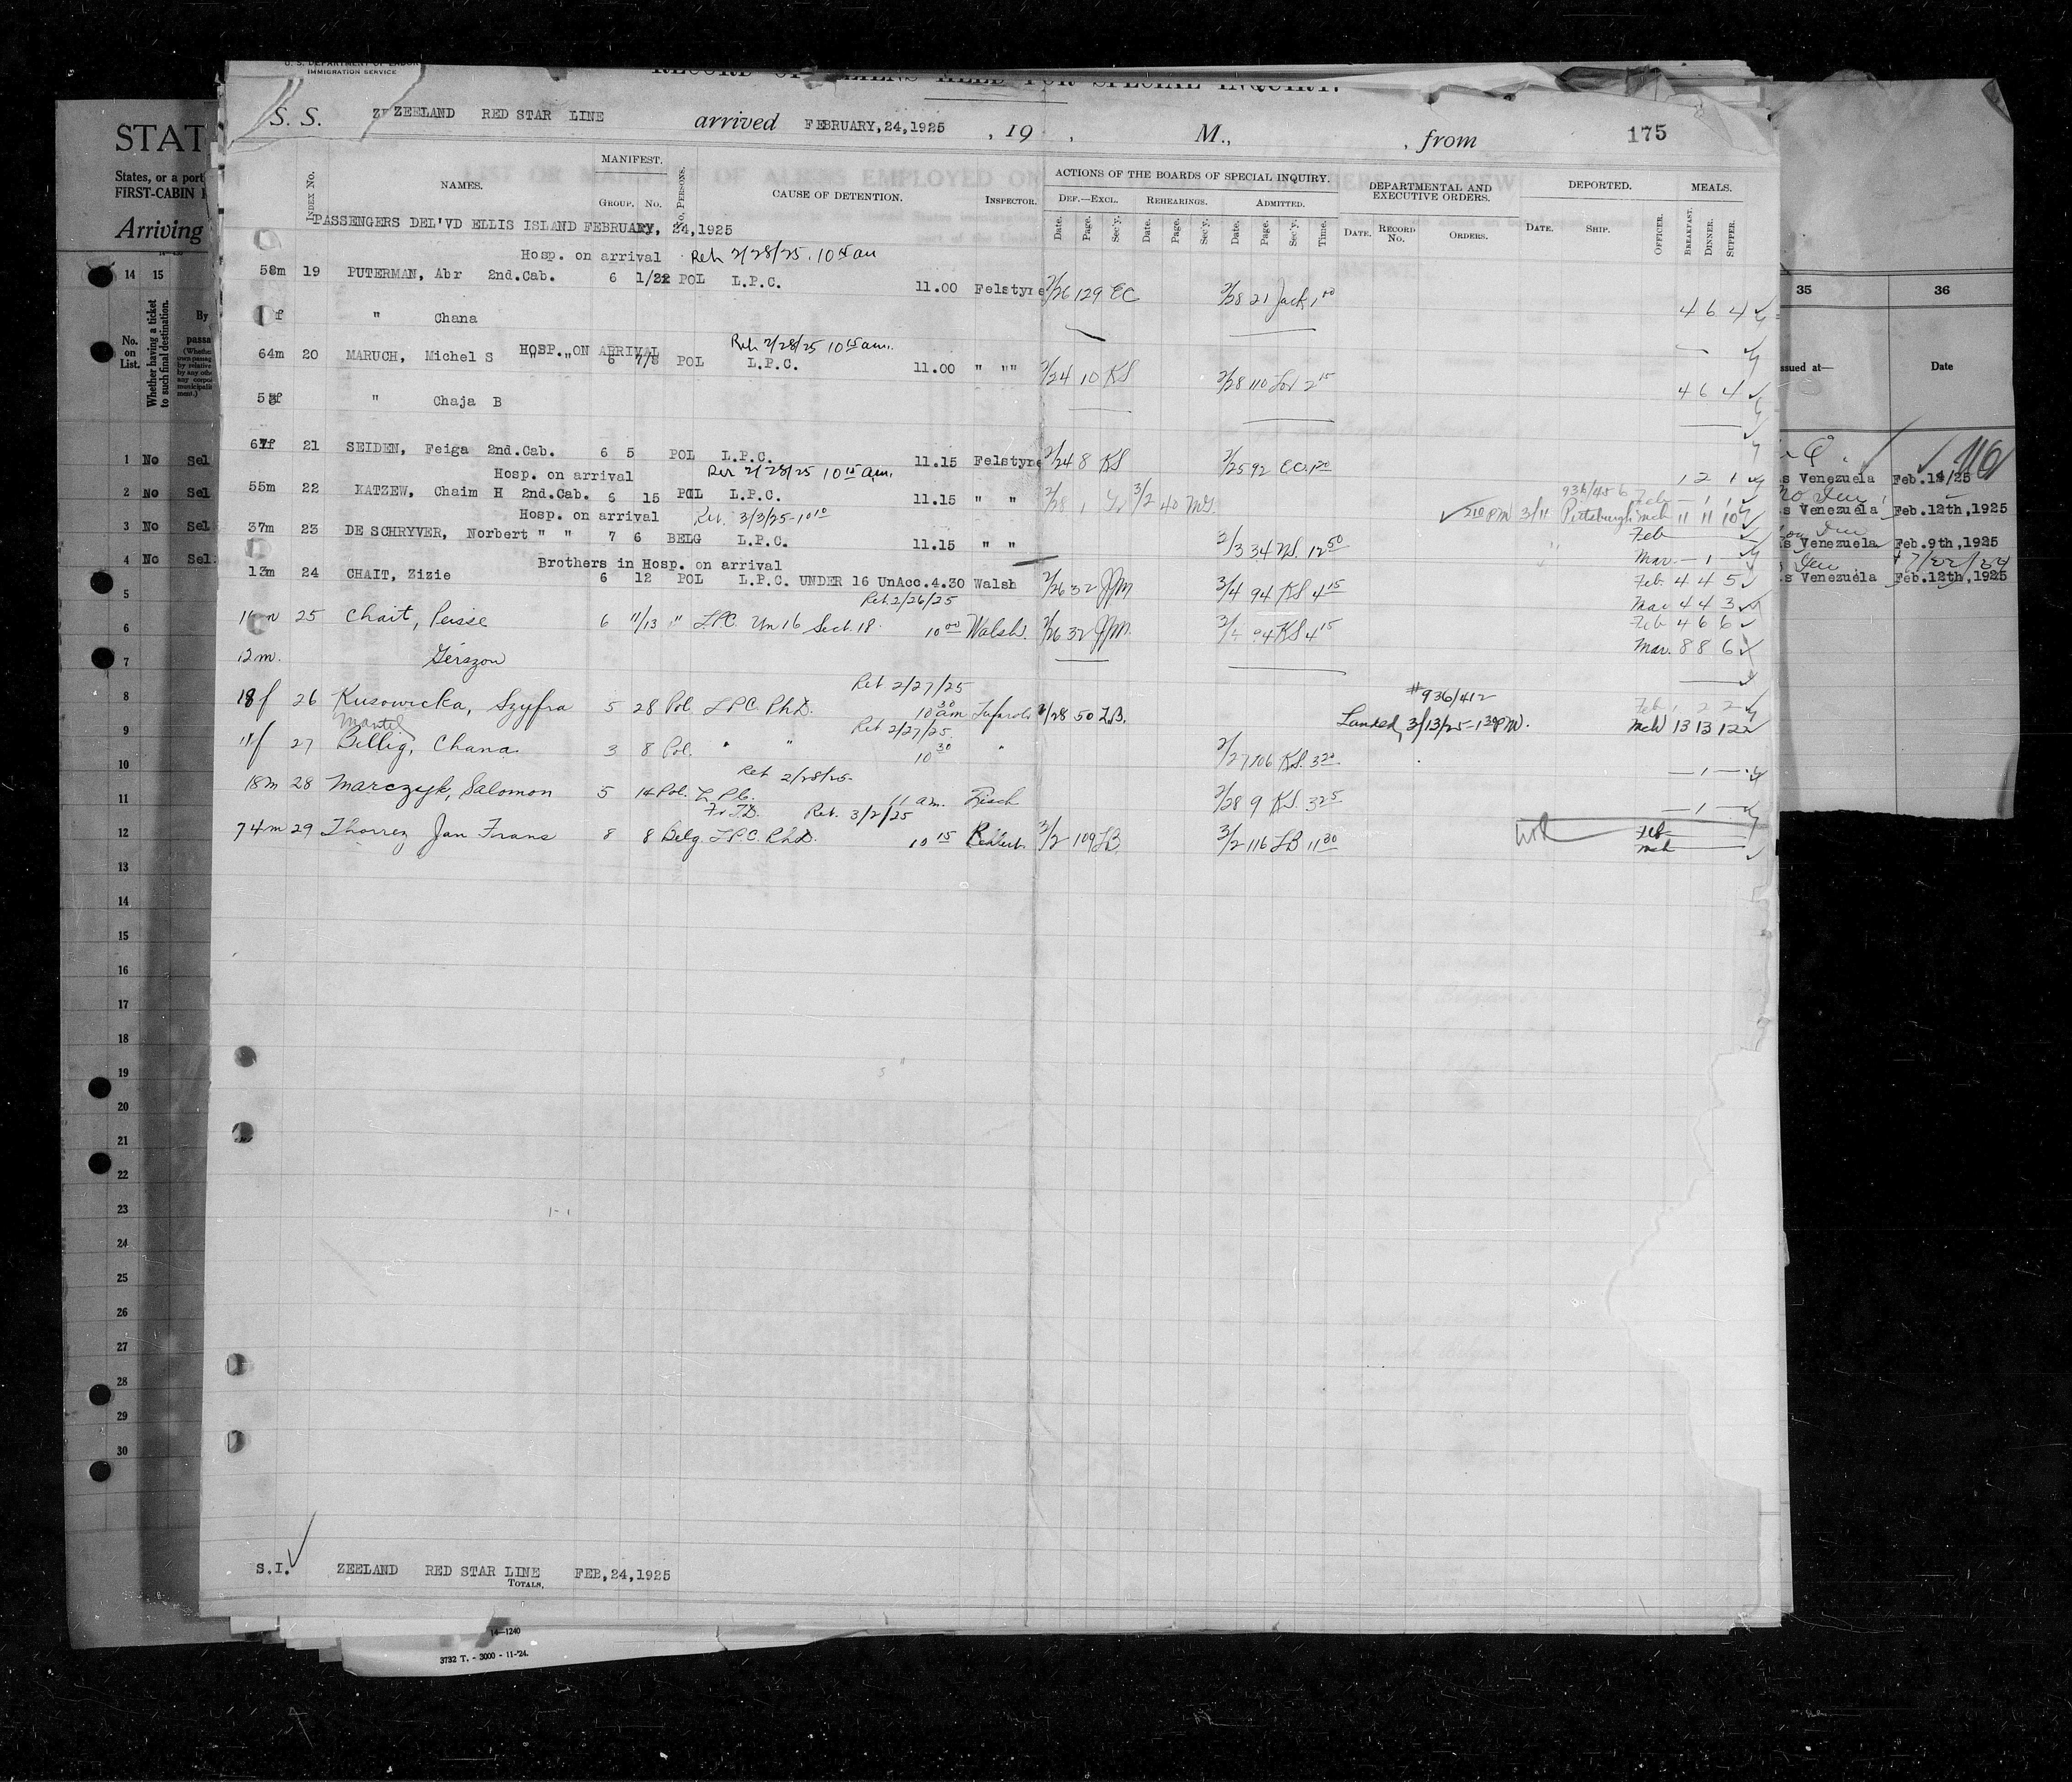 U. S. DEPARTMENT OF LABOR
IMMIGRATION SERVICE
RECORD OF ALIENS HELD FOR SPECIAL INQUIRY.
S. S. ZEELAND RED STAR LINE arrived FEBRUARY,24,1925 , 19 , M., , from 175
INDEX No. NAMES. MANIFEST. GROUP. No. No. PERSONS. CAUSE OF DETENTION. INSPECTOR. ACTIONS OF THE BOARDS OF SPECIAL INQUIRY. DEPARTMENTAL AND EXECUTIVE ORDERS. DEPORTED. MEALS.
DEF.—EXCL. REHEARINGS. ADMITTED.
Date. Page. Sec'y. Date. Page. Sec'y. Date. Page. Sec'y. Time. DATE. RECORD No. ORDERS. DATE. SHIP. OFFICER. BREAKFAST. DINNER. SUPPER.
PASSENGERS DEL'VD ELLIS ISLAND FEBRUARY, 24,1925
Hosp. on arrival Reh 2/28/25. 10 15 am
58m 19 PUTERMAN, Abr 2nd.Cab. 6 1/22 POL L.P.C. 11.00 Felstyre 2/26 129 EC 2/28 21 Jack 1 00 4 6 4
f " Chana
HOSP. ON ARRIVAL Reh 2/28/25 10 15 am.
64m 20 MARUCH, Michel S " " 6 7/8 POL L.P.C. 11.00 " "" 2/24 10 KS 2/28 110 2 15 4 6 4
f " Chaja B
f 21 SEIDEN, Feiga 2nd.Cab. 6 5 POL L.P.C. 11.15 Felstyre 2/24 8 KS 2/25 92 EC 1 20 1 2 1
Hosp. on arrival 2/28/25 10 15 am.
55m 22 KATZEW, Chaim H 2nd.Cab. 6 15 POL L.P.C. 11.15 " " 2/28 1 3/2 40 210 PM 3/11 Pittsburgh 936/456 Feb — 1 1 Mch 11 11 10
Hosp. on arrival Reh. 3/3/25-10 10
37m 23 DE SCHRYVER, Norbert " " 7 6 BELG L.P.C. 11.15 " " 3/3 34 NS. 12 50 Feb — Mar. — 1 —
Brothers in Hosp. on arrival
13m 24 CHAIT, Zizie 6 12 POL L.P.C. UNDER 16 UnAcc. 4.30 Walsh 2/26 32 JPM 3/4 94 KS 4 15 Feb. 4 4 5 Mar 4 4 3
Reh 2/26/25
25 Chait, Peisse 6 11/13 " LPC. Un 16 Sect. 18. 10 00 Walsh. 2/26 32 JPM. 94 KS 4 15 Feb 4 6 6 Mar. 8 8 6
12m. Gerszon
Reh 2/27/25
18f 26 Kusowicka, Szyfra 5 28 Pol. LPC. PhD. 10 30 am 2/28 50 LB. #936/412 Landed 3/13/25-1 30 PM. Feb 1 2 2 Mch 13 13 12
Mantil Reh 2/27/25.
11f 27 Billig, Chana 3 8 Pol. " " 10 30 " 2/27 106 KS. 3 20 — 1 —
Reh 2/28/25-
18m 28 Marczyk, Salomon 5 14 Pol. L.P.C. 11 am. Fisch 2/28 9 KS. 3 25 — 1 —
Reh. 3/2/25
74m 29 Thorrez Jan Frans 8 8 Belg. LPC. PhD. 10 15 3/2 109 LB. 3/2 116 LB 11 30 Feb Mch
S.I. ZEELAND RED STAR LINE FEB,24,1925
TOTALS,
14—1240
3732 T. - 3000 - 11-'24.
STAT
States, or a port
FIRST-CABIN
Arriving
14 15
No. on List.
Whether having a ticket to such final destination.
By
passa
1 No Sel
2 No Sel
3 No Sel
4 No Sel
5
6
7
8
9
10
11
12
13
14
15
16
17
18
19
20
21
22
23
24
25
26
27
28
29
30
35 36
ssued at— Date
s Venezuela Feb.14/25
s Venezuela Feb.12th,1925
s Venezuela Feb.9th,1925
s Venezuela Feb.12th,1925